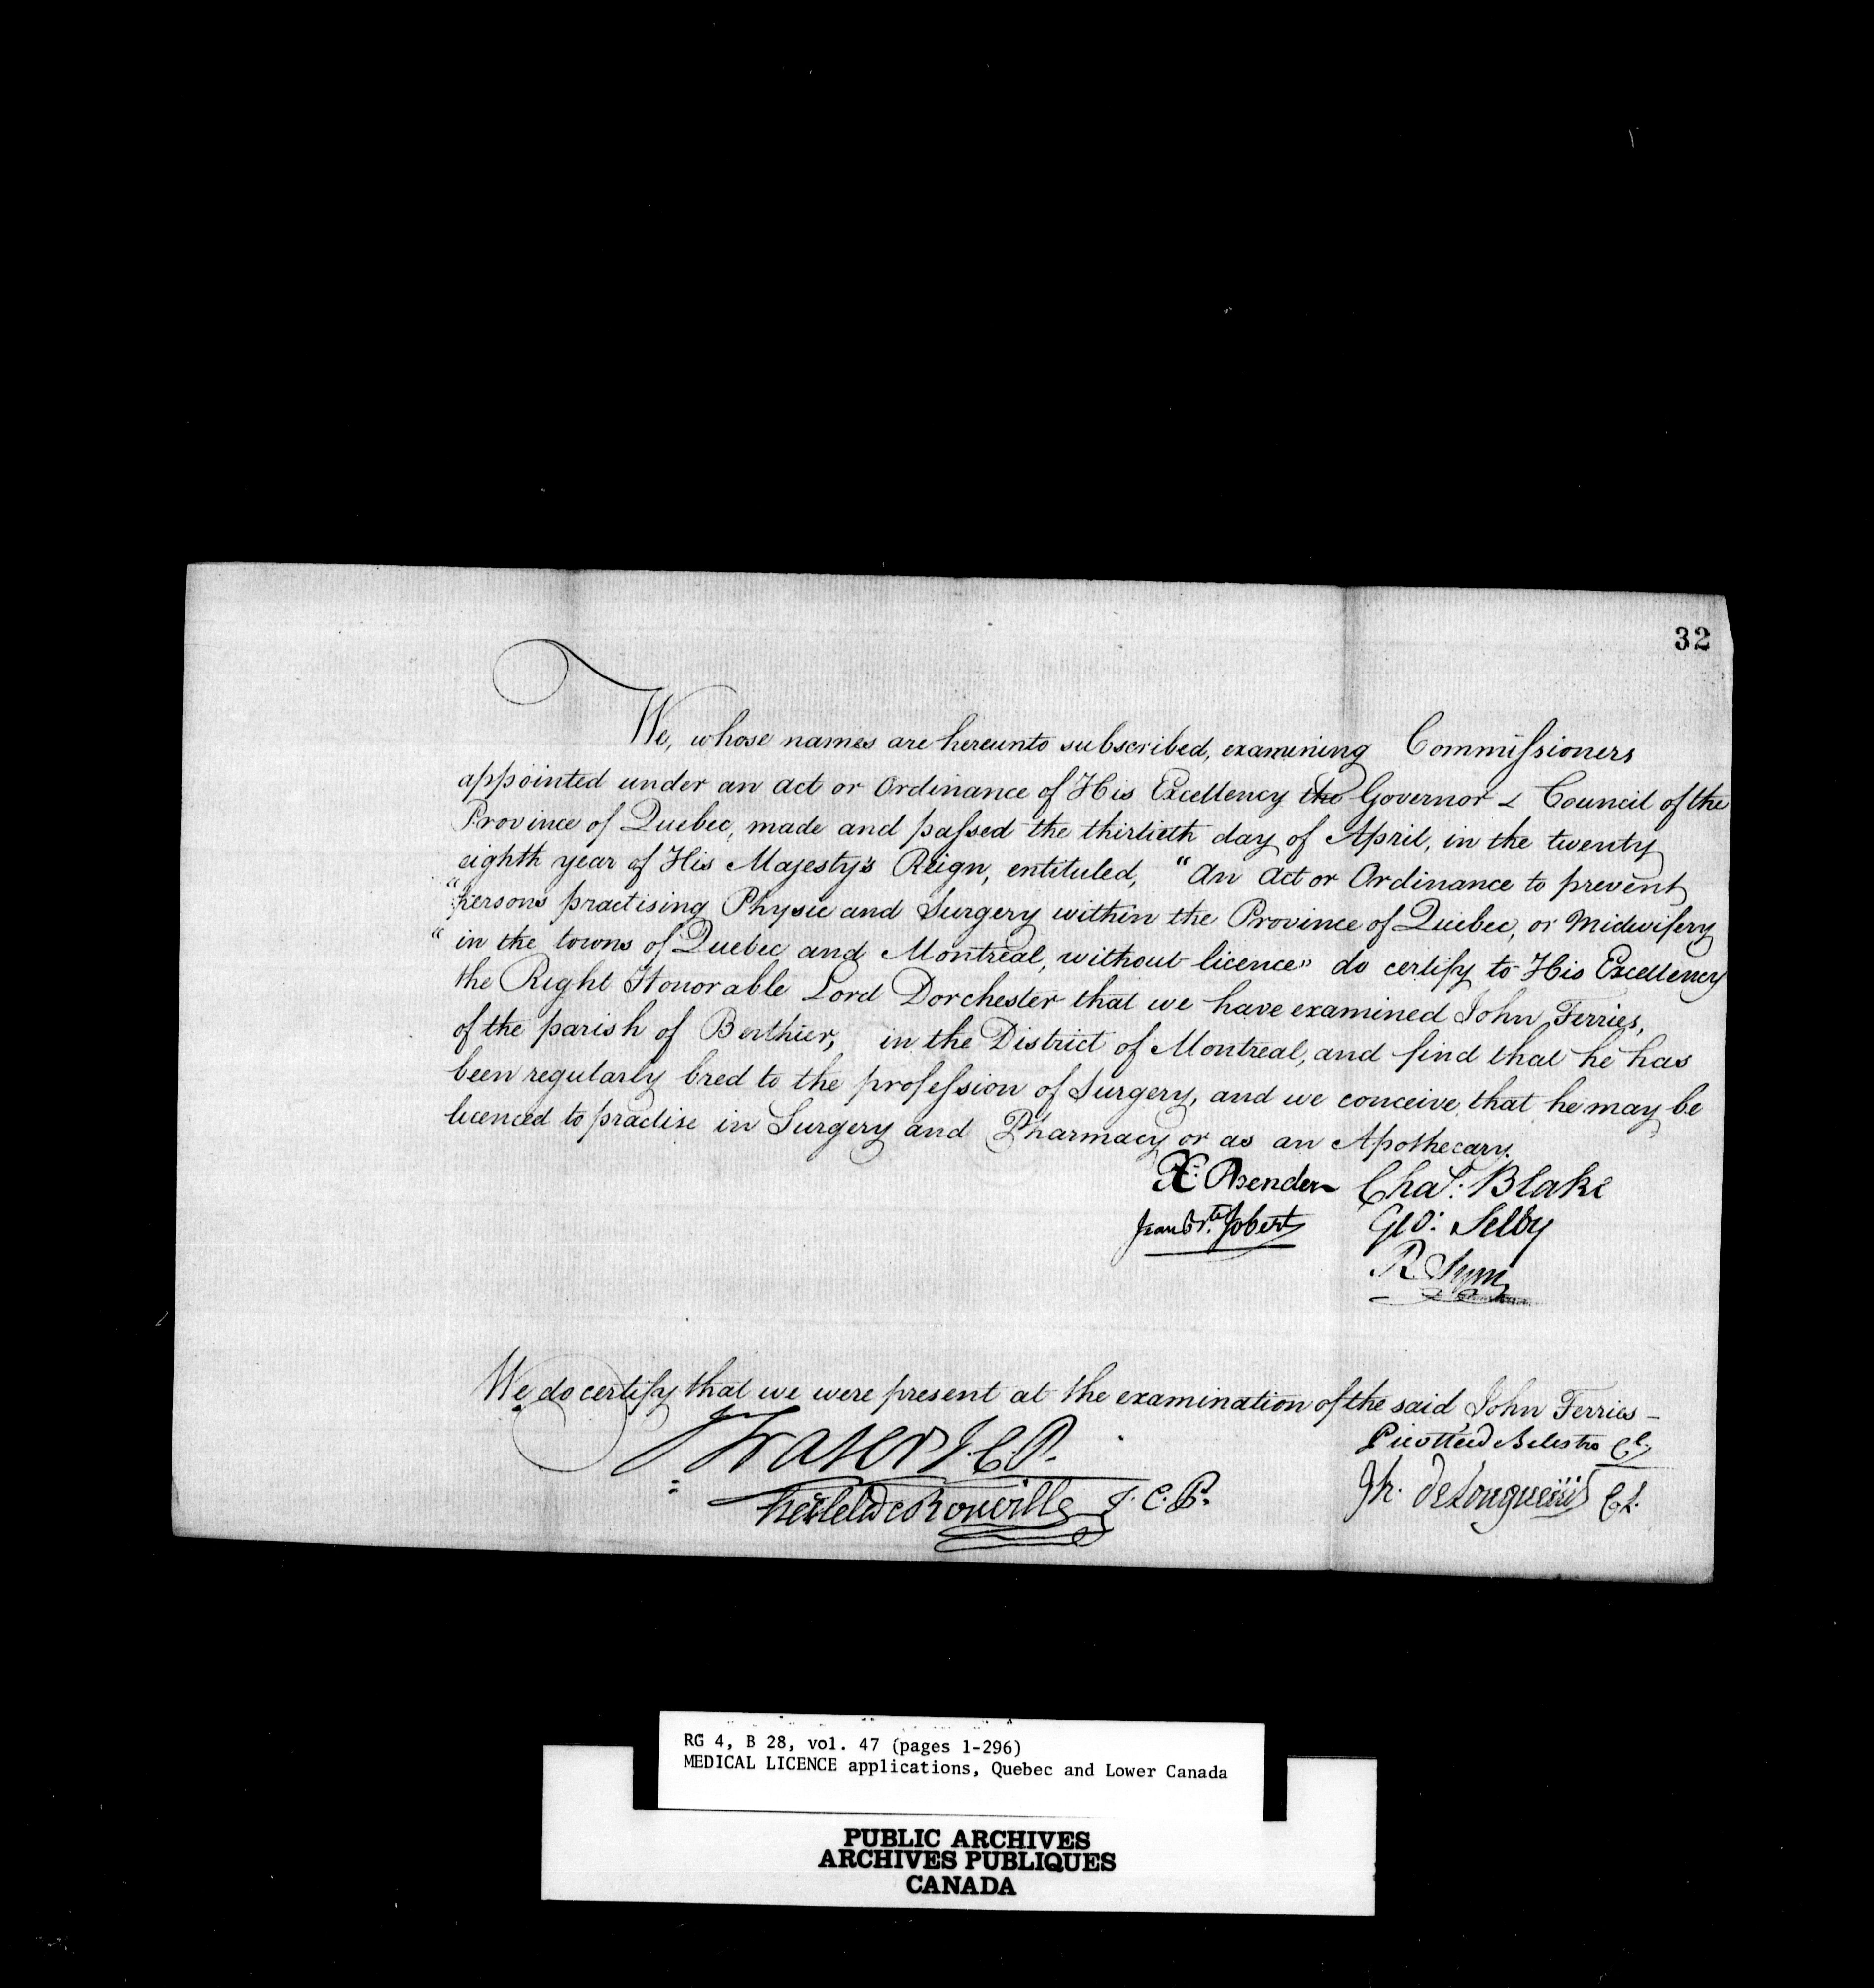 32
We, whose names are hereunto subscribed, examining Commissioners
appointed under an act or Ordinance of His Excellency the Governor & Council of the
Province of Quebec, made and passed the thirtieth day of April, in the twenty
eighth year of His Majesty's Reign, entituled, "An Act or Ordinance to prevent
"persons practising Physic and Surgery within the Province of Quebec, or Midwifery
"in the towns of Quebec and Montreal, without licence" do certify to His Excellency
the Right Honorable Lord Dorchester that we have examined John Ferries,
of the parish of Berthier, in the District of Montreal, and find that he has
been regularly bred to the profession of Surgery, and we conceive that he may be
licenced to practise in Surgery and Pharmacy or as an Apothecary.
X: Bender Chas: Blake
Jean Bte. Jobert Geo: Selby
R. Sym
We do certify that we were present at the examination of the said John Ferries –
Fraser J.C.P. Picotté de Belestre CL
hertel De Rouville J.C.P. Jh. DeLongueuil CL
RG 4, B 28, vol. 47 (pages 1-296)
MEDICAL LICENCE applications, Quebec and Lower Canada
PUBLIC ARCHIVES
ARCHIVES PUBLIQUES
CANADA